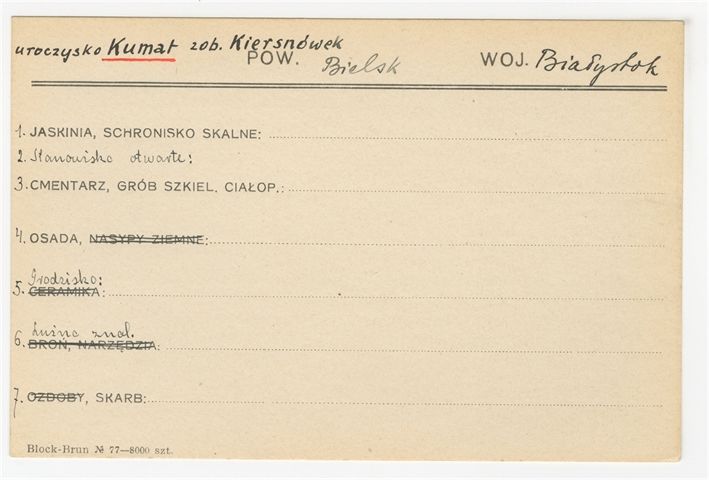 uroczysko Kumat zob. Kiersnówek
POW. Bielsk WOJ. Białystok
1. JASKINIA, SCHRONISKO SKALNE:
2. Stanowisko otwarte:
3. CMENTARZ, GRÓB SZKIEL. CIAŁOP.:
4. OSADA, NASYPY ZIEMNE:
Grodzisko:
5. CERAMIKA:
Luźne znal.
6. BROŃ, NARZĘDZIA:
7. OZDOBY, SKARB:
Block-Brun № 77—8000 szt.